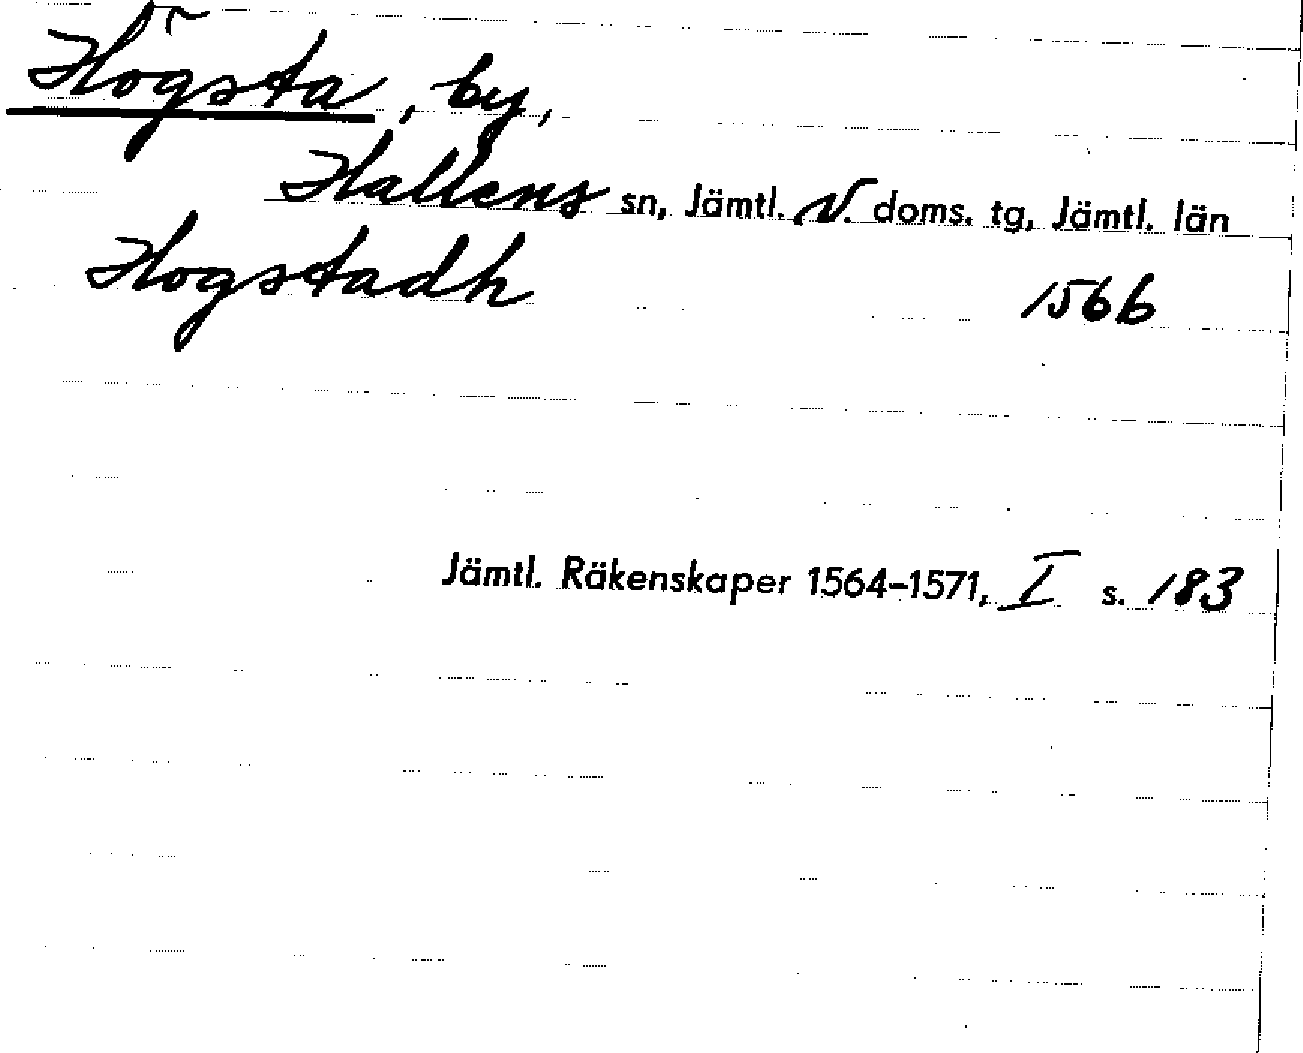 Högsta, by,
Hallens sn, Jämtl. V. doms. tg, Jämtl. län
Hogstadh 1566
Jämtl. Räkenskaper 1564-1571, I s. 183